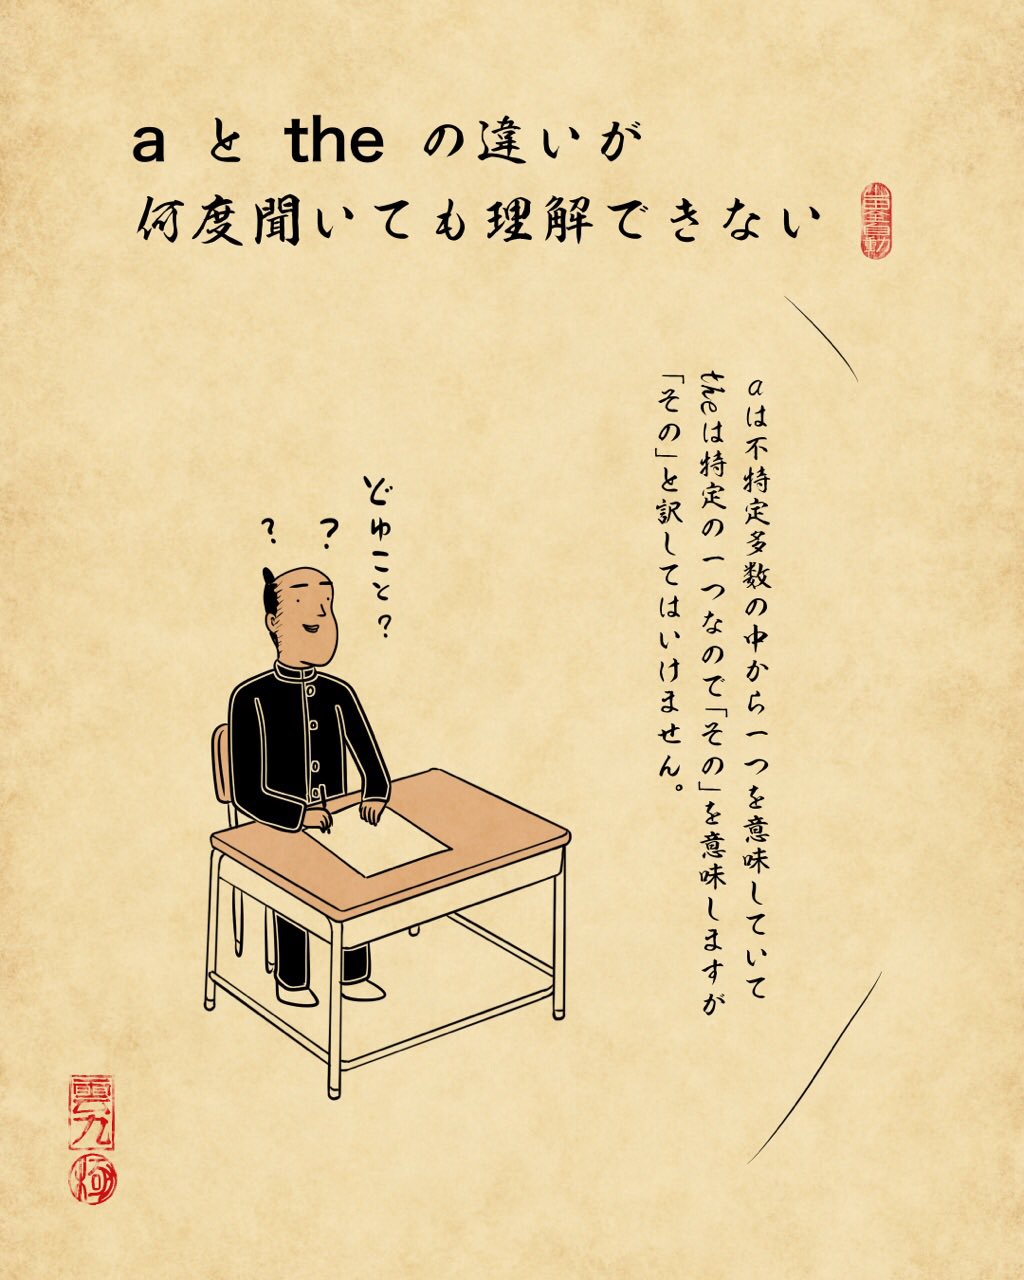 a と the の違いが
何度聞いても理解できない
aは不特定多数の中から一つを意味していて
theは特定の一つなので「その」を意味しますが
「その」と訳してはいけません。
?
?
どゆこと?